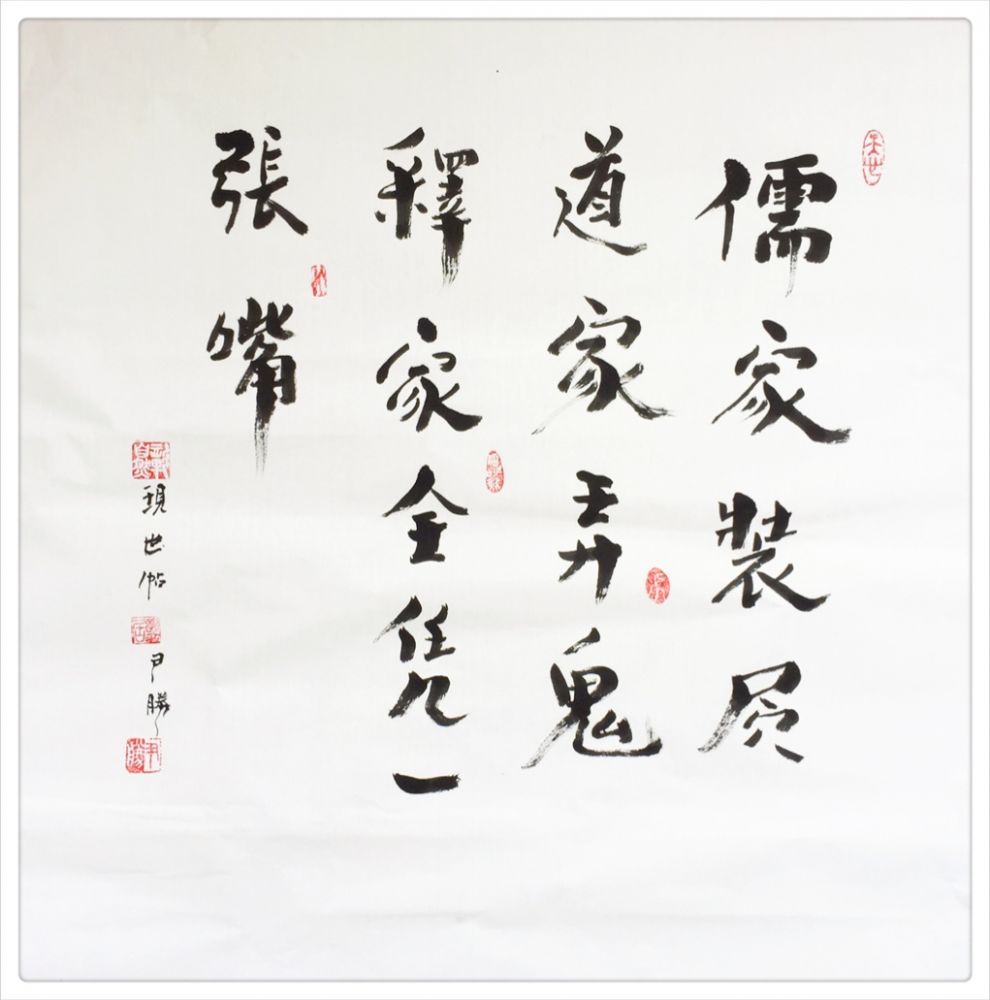 儒家裝屄
道家弄鬼
釋家全凭一
張嘴
現世帖 尹勝
尹勝